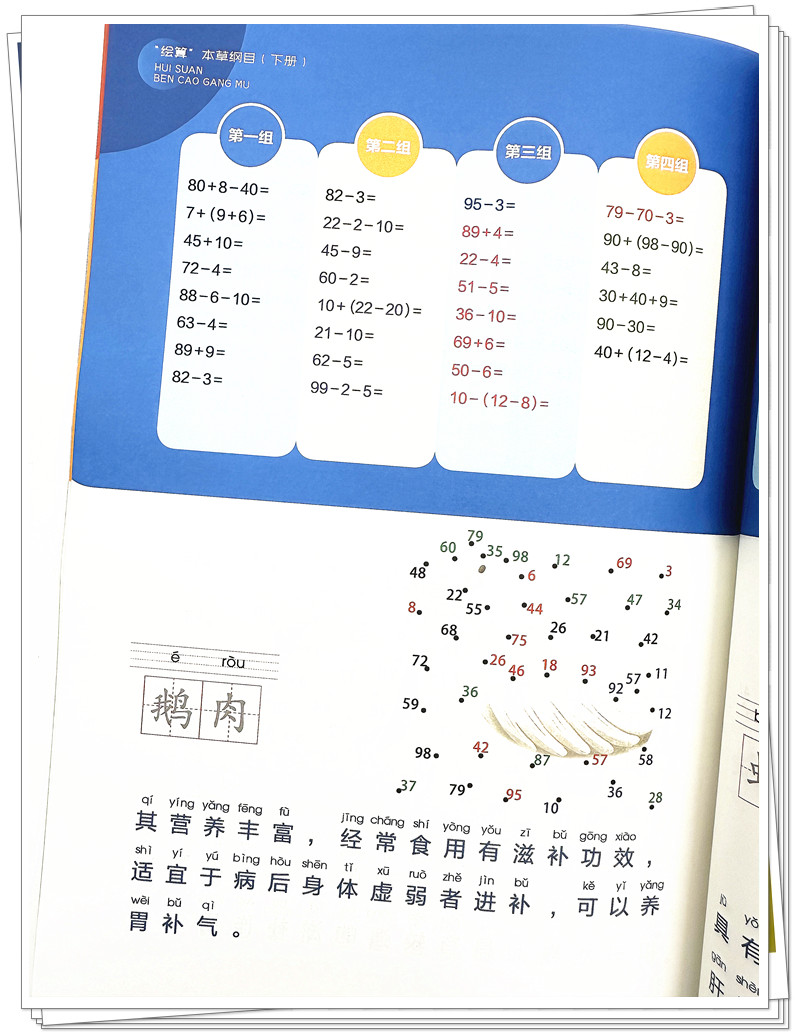 “绘算”本草纲目（下册）
HUI SUAN
BEN CAO GANG MU
第一组
80+8-40=
7+(9+6)=
45+10=
72-4=
88-6-10=
63-4=
89+9=
82-3=
第二组
82-3=
22-2-10=
45-9=
60-2=
10+(22-20)=
21-10=
62-5=
99-2-5=
第三组
95-3=
89+4=
22-4=
51-5=
36-10=
69+6=
50-6=
10-(12-8)=
第四组
79-70-3=
90+(98-90)=
43-8=
30+40+9=
90-30=
40+(12-4)=
79
60 35 98 12 69 3
48 6
22 57 47 34
8 55 44
68 75 26 21 42
72 26 46 18 93 57 11
92
59 36 12
98 42 87 57 58
37 79 95 10 36 28
é ròu
鹅肉
qí yíng yǎng fēng fù jīng cháng shí yòng yǒu zī bǔ gōng xiào
其营养丰富，经常食用有滋补功效，
shì yí yú bìng hòu shēn tǐ xū ruò zhě jìn bǔ kě yǐ yǎng
适宜于病后身体虚弱者进补，可以养
wèi bǔ qì
胃补气。
jù yǒ
具有
gān shèn
肝